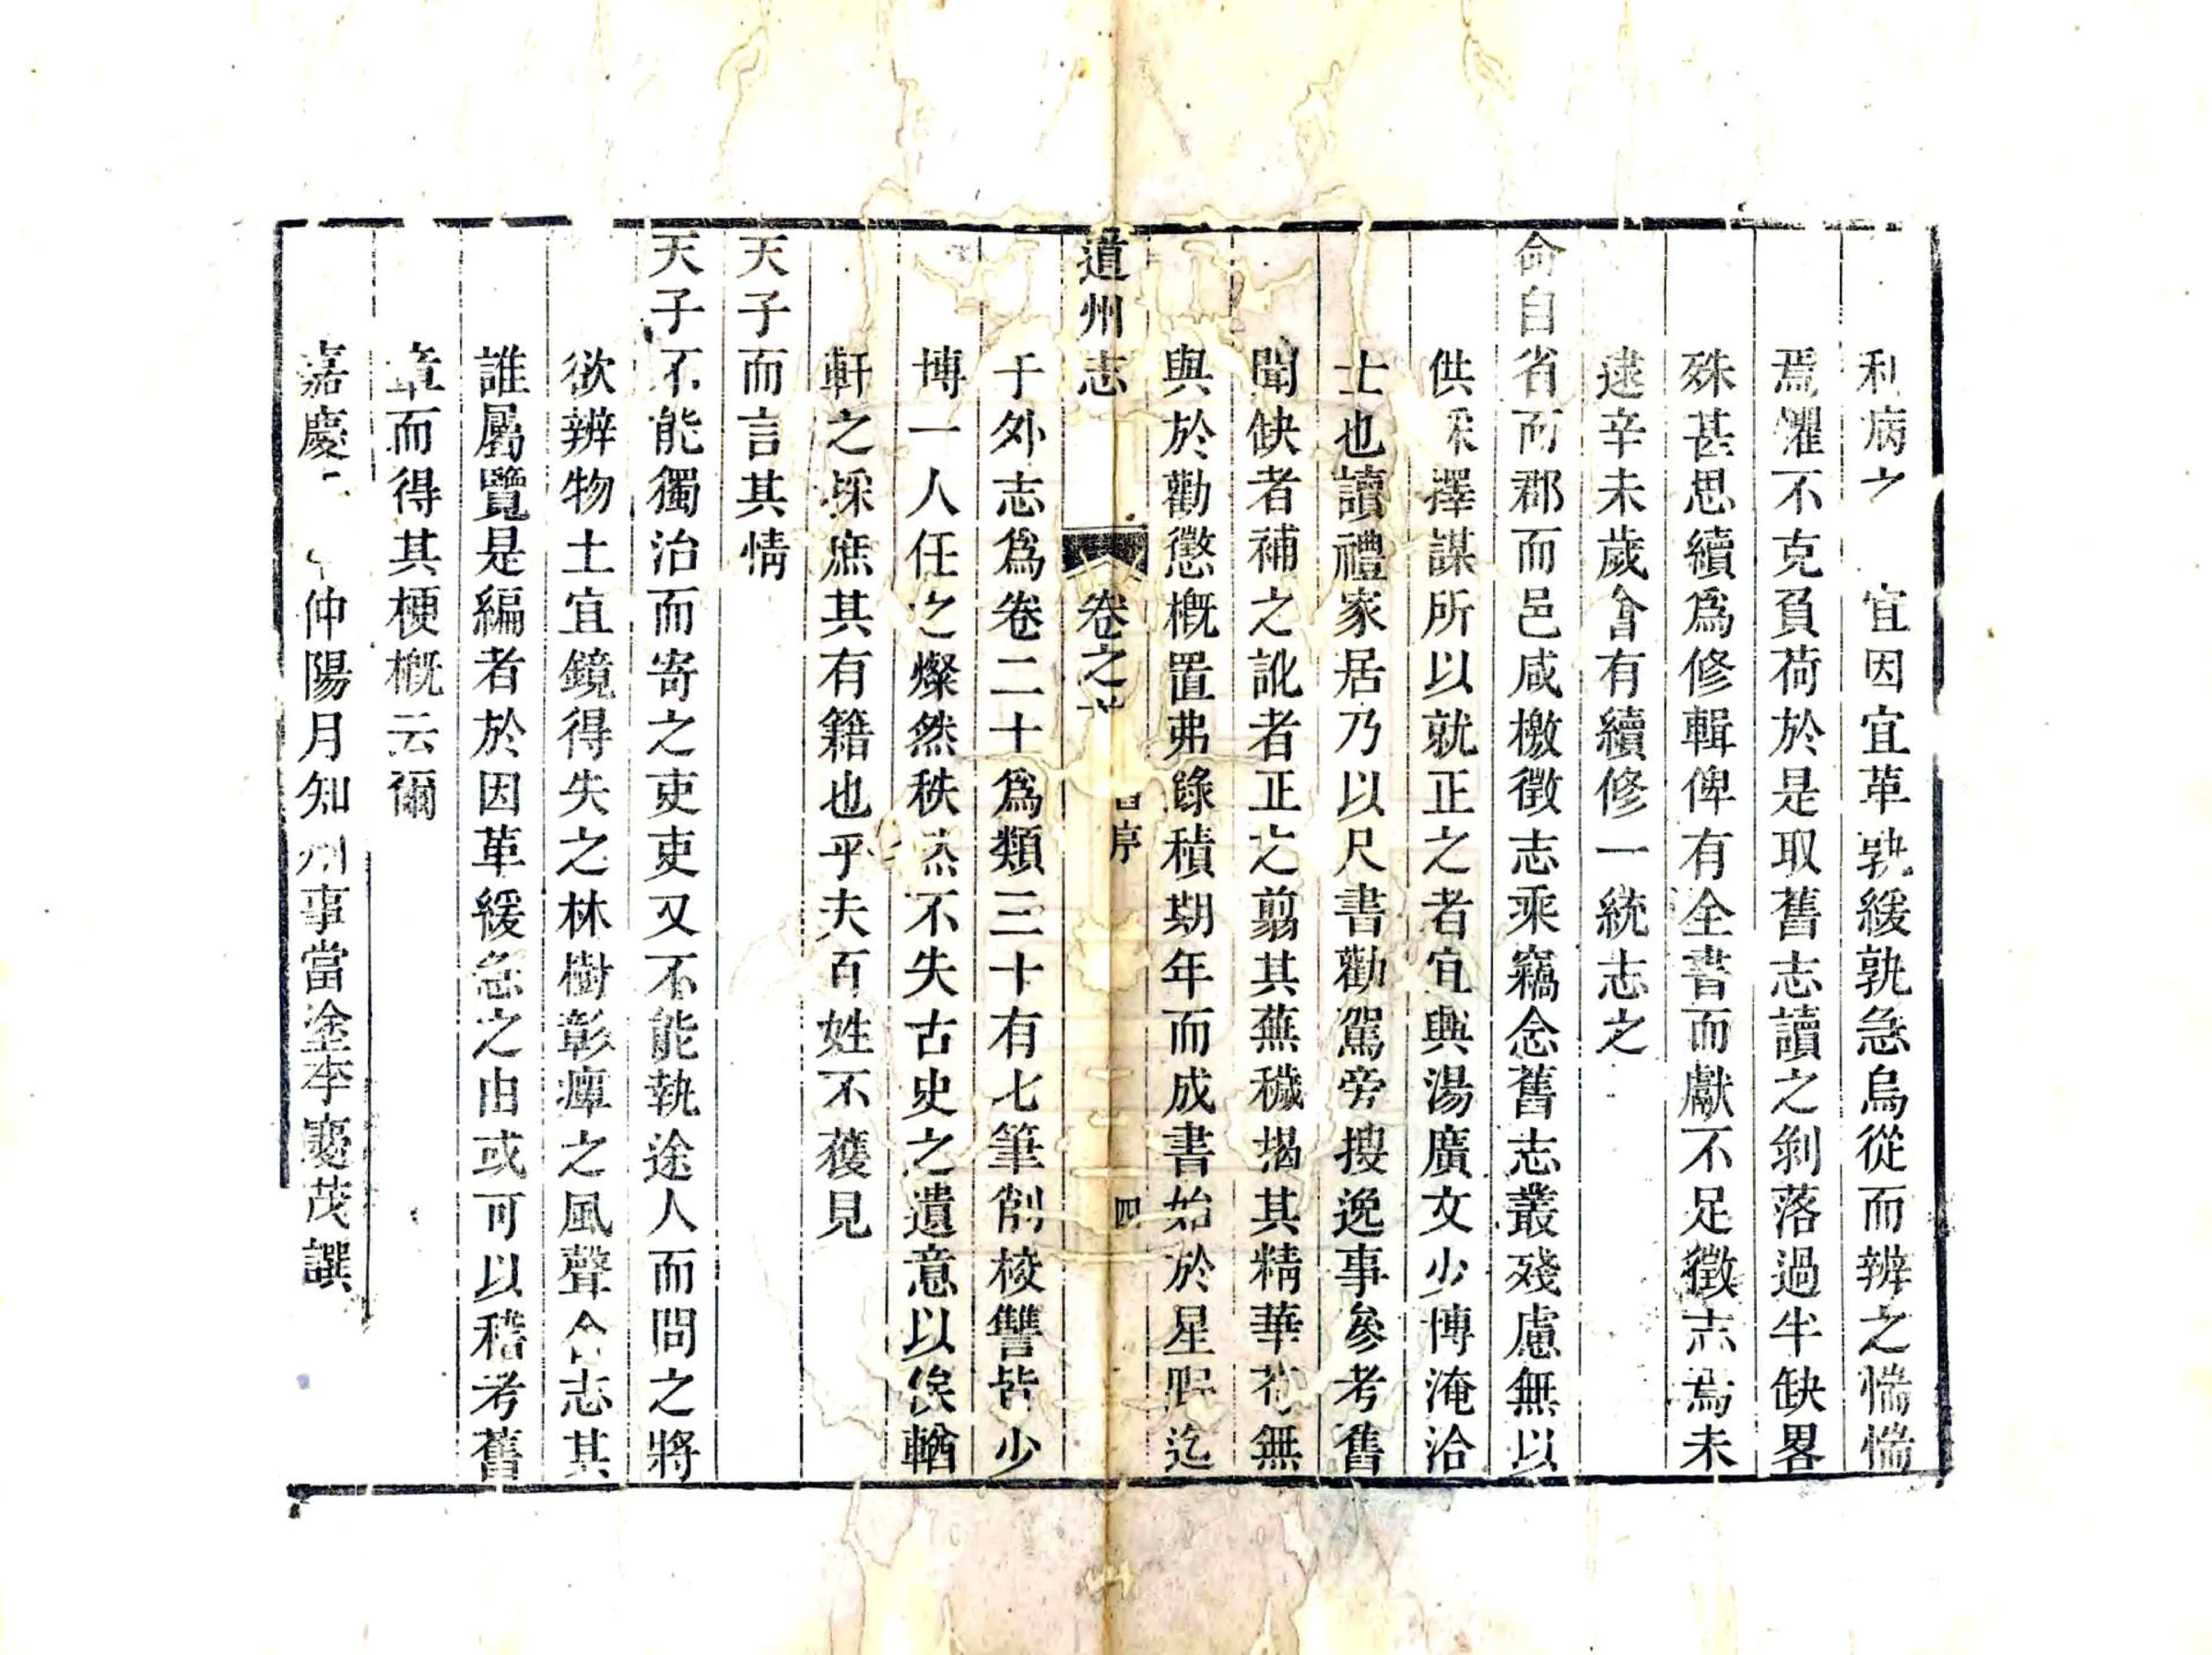 利病之 宜因宜革孰緩孰急烏從而辨之惴惴
焉懼不克負荷於是取舊志讀之剝落過半缺畧
殊甚思續爲修輯俾有全書而獻不足徵志焉未
逮辛未歲會有續修一統志之
命白省而郡而邑咸檄徵志乘竊念舊志叢殘慮無以
供采擇謀所以就正之者宜興湯廣文少博淹洽
士也讀禮家居乃以尺書勸駕旁搜逸事參考舊
聞缺者補之訛者正之翦其蕪穢掲其精華苟無
與於勸懲概置弗錄積期年而成書始於星 迄
道州志 卷之 序 四
于外志爲卷二十爲類三十有七筆削校讐皆少
博一人任之燦然秩然不失古史之遺意以俟輶
軒之採庶其有籍也乎夫百姓不獲見
天子而言其情
天子不能獨治而寄之吏吏又不能執途人而問之將
欲辨物土宜鏡得失之林樹彰癉之風聲舍志其
誰屬覽是編者於因革緩急之由或可以稽考舊
章而得其梗概云爾
嘉慶 仲陽月知州事當塗李 茂譔